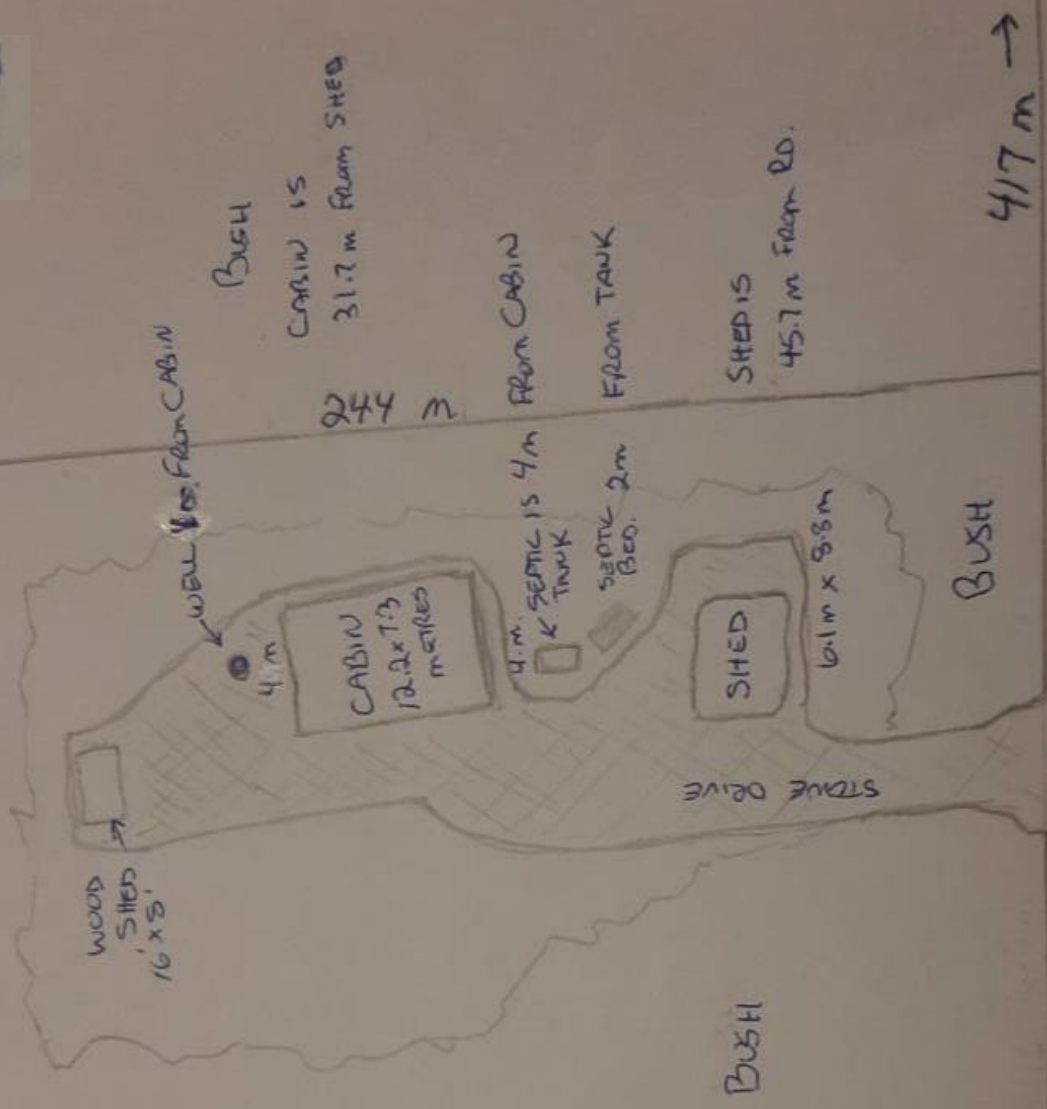 WOOD
SHED
16' x 8'
WELL FROM CABIN
4 m
BUSH
CABIN
12.2 x 7.3
METRES
CABIN IS
m FROM SHED
244
m
4. m.
SEPTIC IS 4m FROM CABIN
TANK
SEPTIC 2m FROM TANK
BED.
SHED
6.1m x 8.8m
SHED IS
45.7 m FROM RD.
STONE DRIVE
BUSH
BUSH
417 m →